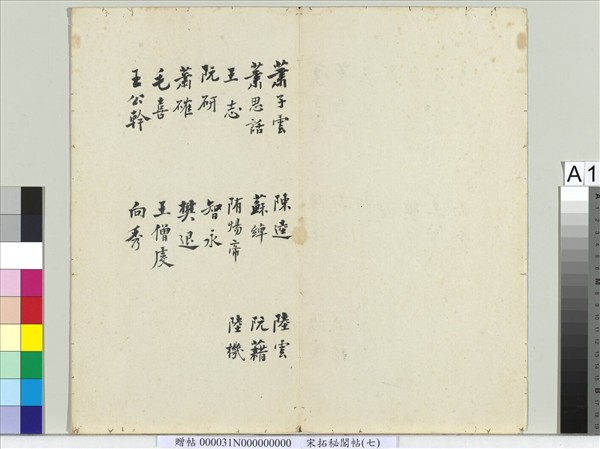 蕭子雲 陳逵 陸雲
蕭思話 蘇綽 阮籍
王志 隋煬帝 陸機
阮研 智永
蕭確 樊退
毛喜 王僧虔
王公幹 向秀
A 1
贈帖 000031N000000000 宋拓秘閣帖(七)